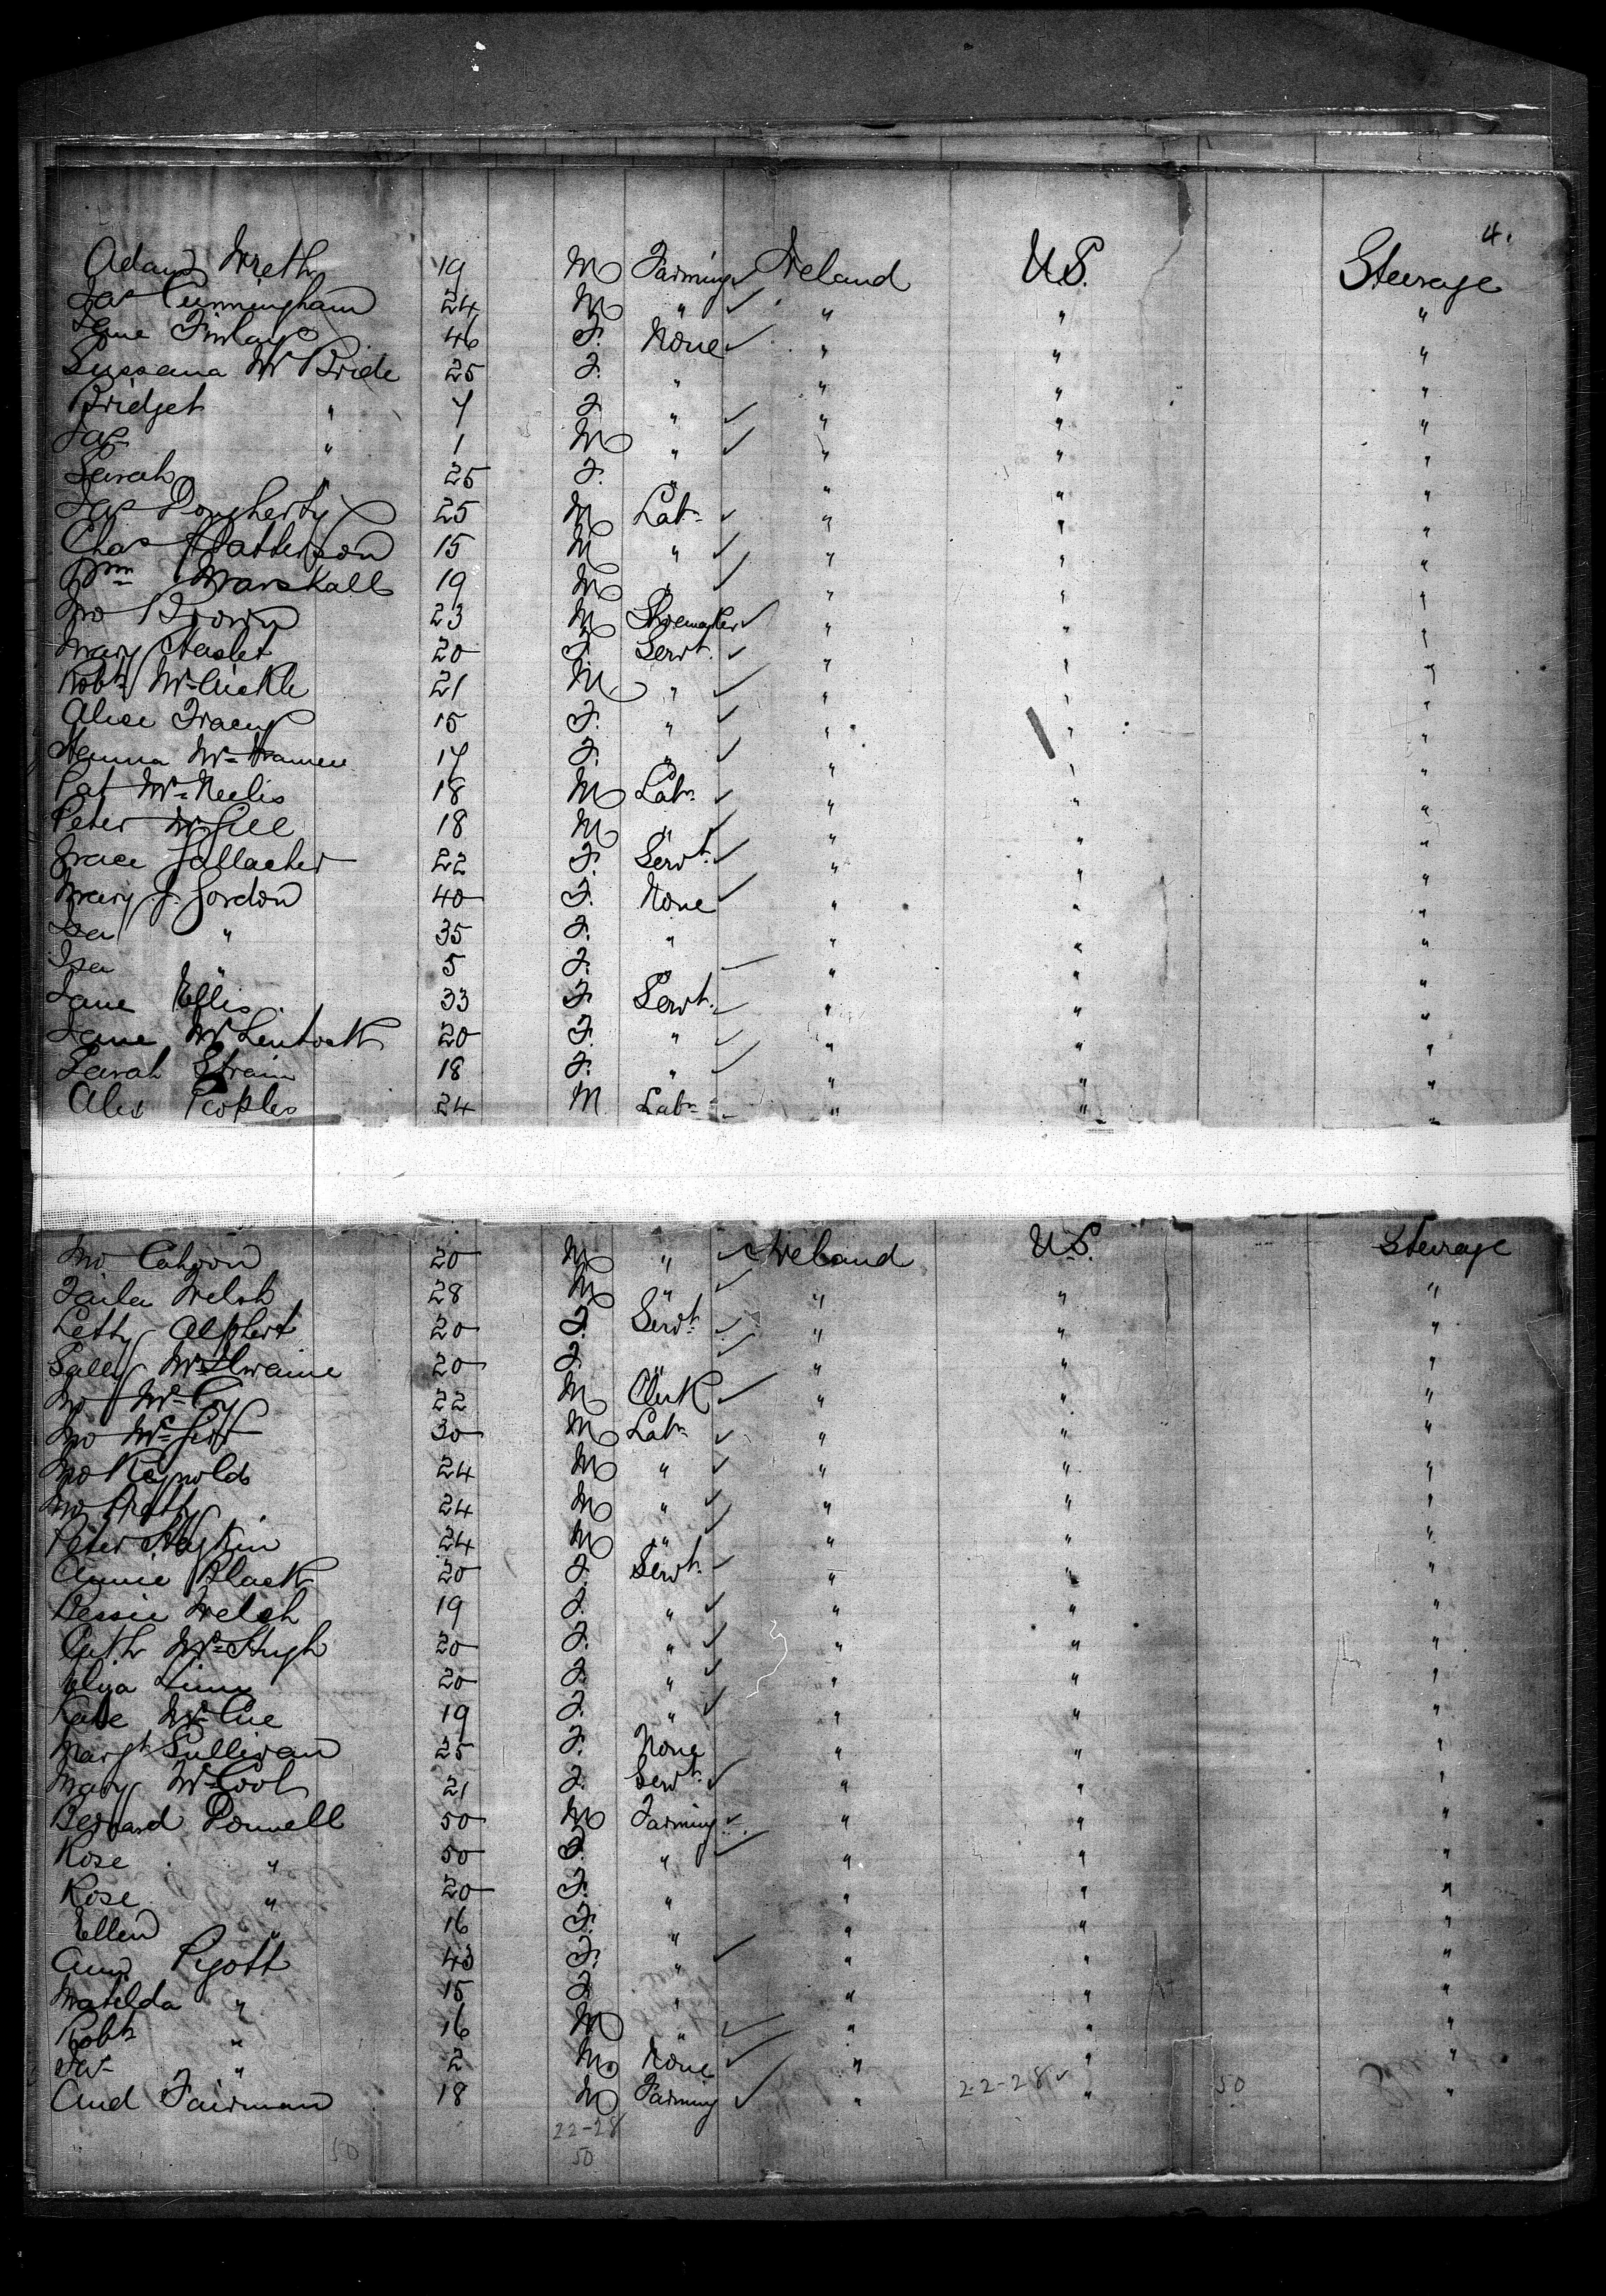 4.
Adam Wreth 19 M Farming Ireland U.S. Steerage
Jas Cunningham 24 M " " " "
Jane Finlay 46 F. None " " "
Sussana Mc Bride 25 F. " " " "
Bridget " 7 F. " " " "
Jas " 1 M " " " "
Sarah " 25 F. " " " "
Jas Dougherty 25 M Labr " " "
Chas Patterson 15 M " " " "
Wm Marshall 19 M " " " "
Jno Brown 23 M Shoemaker " " "
Mary Haslet 20 F. Servt. " " "
Robt 21 M " " " "
Alice Tracey 15 F. " " " "
17 F. " " " "
Pat McNeelis 18 M Labr " " "
Peter McGill 18 M " " " "
Grace Gallacher 22 F. Servt. " " "
Mary J. Gordon 40 F. None " " "
Isa " 35 F. " " " "
Isa " 5 F. " " " "
Jane Ellis 33 F. Servt. " " "
Jane 20 F. " " " "
Sarah Strain 18 F. " " " "
Alex Peoples 24 M Labr " " "
Jno Cahoon 20 M " Ireland U.S. Steerage
Welsh 28 M " " " "
Letty 20 F. Servt. " " "
Sally McIlwaine 20 F. " " " "
Jno McCoy 22 M Clerk " " "
Jno 30 M Labr " " "
Jno Reynolds 24 M " " " "
Jno 24 M " " " "
Peter 24 M " " " "
Annie Black 20 F. Servt. " " "
Bessie Welsh 19 F. " " " "
Cath McHugh 20 F. " " " "
Eliza 20 F. " " " "
Kate McCue 19 F. " " " "
Margt Sullivan 25 F. None " " "
Mary McCool 21 F. Servt. " " "
Bernard Donnell 50 M Farming " " "
Rose " 50 F. " " " "
Rose " 20 F. " " " "
Ellen " 16 F. " " " "
Ann Pyott 43 F. " " " "
Matilda " 15 F. " " " "
Robt " 16 M " " " "
Jas " 2 M None " " "
And Fairman 18 M Farming " 22-28 " 50 "
22-28
50 50